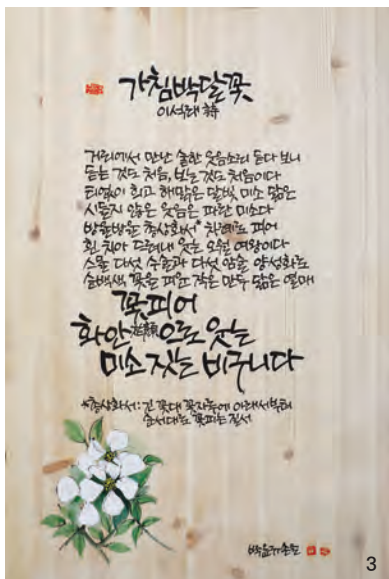 가침박달꽃
이석래 詩
거리에서 만난 숱한 웃음소리 듣다 보니
듣는 것도 처음, 보는 것도 처음이다
티없이 희고 해맑은 달빛 미소 닮은
시들지 않은 웃음은 파란 미소다
방울방울 총상화서* 차례로 피어
흰 치아 드러내 웃는 오월 여왕이다
스물 다섯 수술과 다섯 암술 양성화로
순백색 꽃을 피운 작은 만두 닮은 열매
꽃피어
화안花顔으로 웃는
미소 짓는 비구니다
*총상화서: 긴 꽃대 꽃자루에 아래서부터
순서대로 꽃피는 질서
3